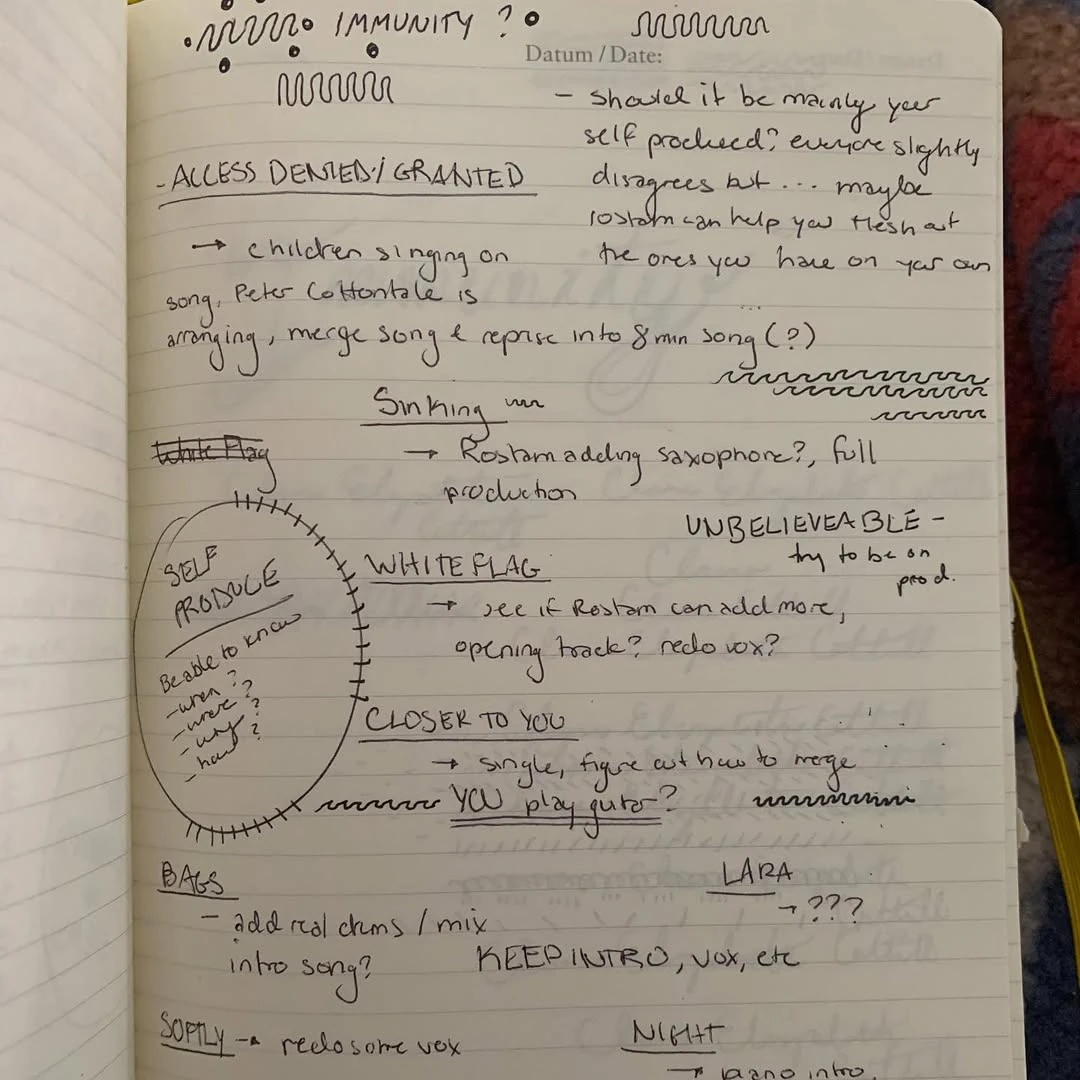 IMMUNITY ?
Datum / Date:
- should it be mainly your
self produced? everyone slightly
disagrees but ... maybe
rostam can help you flesh out
the ones you have on your own
- ACCESS DENIED / GRANTED
→ children singing on
song, Peter Cottontale is
arranging, merge song & reprise into 8 min song (?)
Sinking
→ Rostam adding saxophone?, full
production
White Flag
UNBELIEVEABLE -
try to be on
prod.
SELF
PRODUCE
Be able to know
- when ?
- where ?
- why ?
- how ?
WHITE FLAG
→ see if Rostam can add more,
opening track? redo vox?
CLOSER TO YOU
→ single, figure out how to merge
YOU play guitar?
BAGS
- add real drums / mix
intro song?
LARA
→ ???
KEEP INTRO, vox, etc
SOFTLY → redo some vox
NIGHT
→ piano intro,